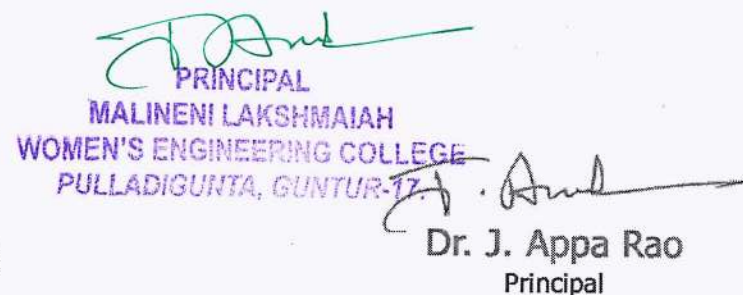 PRINCIPAL
MALINENI LAKSHMAIAH
WOMEN'S ENGINEERING COLLEGE
PULLADIGUNTA, GUNTUR-17.
Dr. J. Appa Rao
Principal